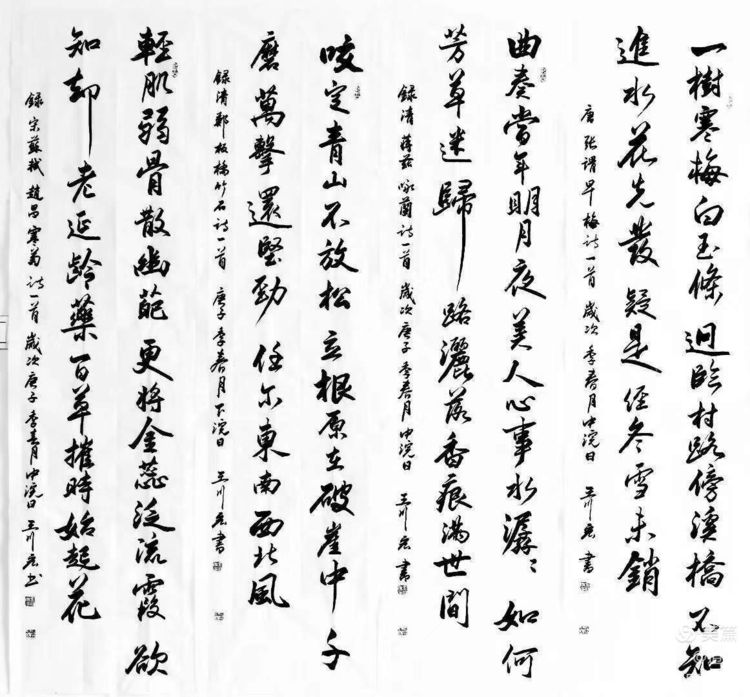 一樹寒梅白玉條迥臨村路傍溪橋不知
進水花先發疑是經冬雪未銷
唐張謂早梅詩一首 歲次季春月中浣日 王川書
曲奏當年明月夜美人心事水潺〻如何
芳草迷歸路灑落香痕滿世間
録清蔣詠蘭詩一首 歲次庚子季春月中浣日 王川書
咬定青山不放松立根原在破崖中千
磨萬擊還堅勁任尔東南西北風
録清鄭板橋竹石詩一首 庚子季春月下浣日 王川書
輕肌弱骨散幽葩更將金蕊泛流霞欲
知却老延齡藥百草摧時始起花
録宋蘇軾趙昌寒菊詩一首 歲次庚子季春月中浣日 王川书
美篇